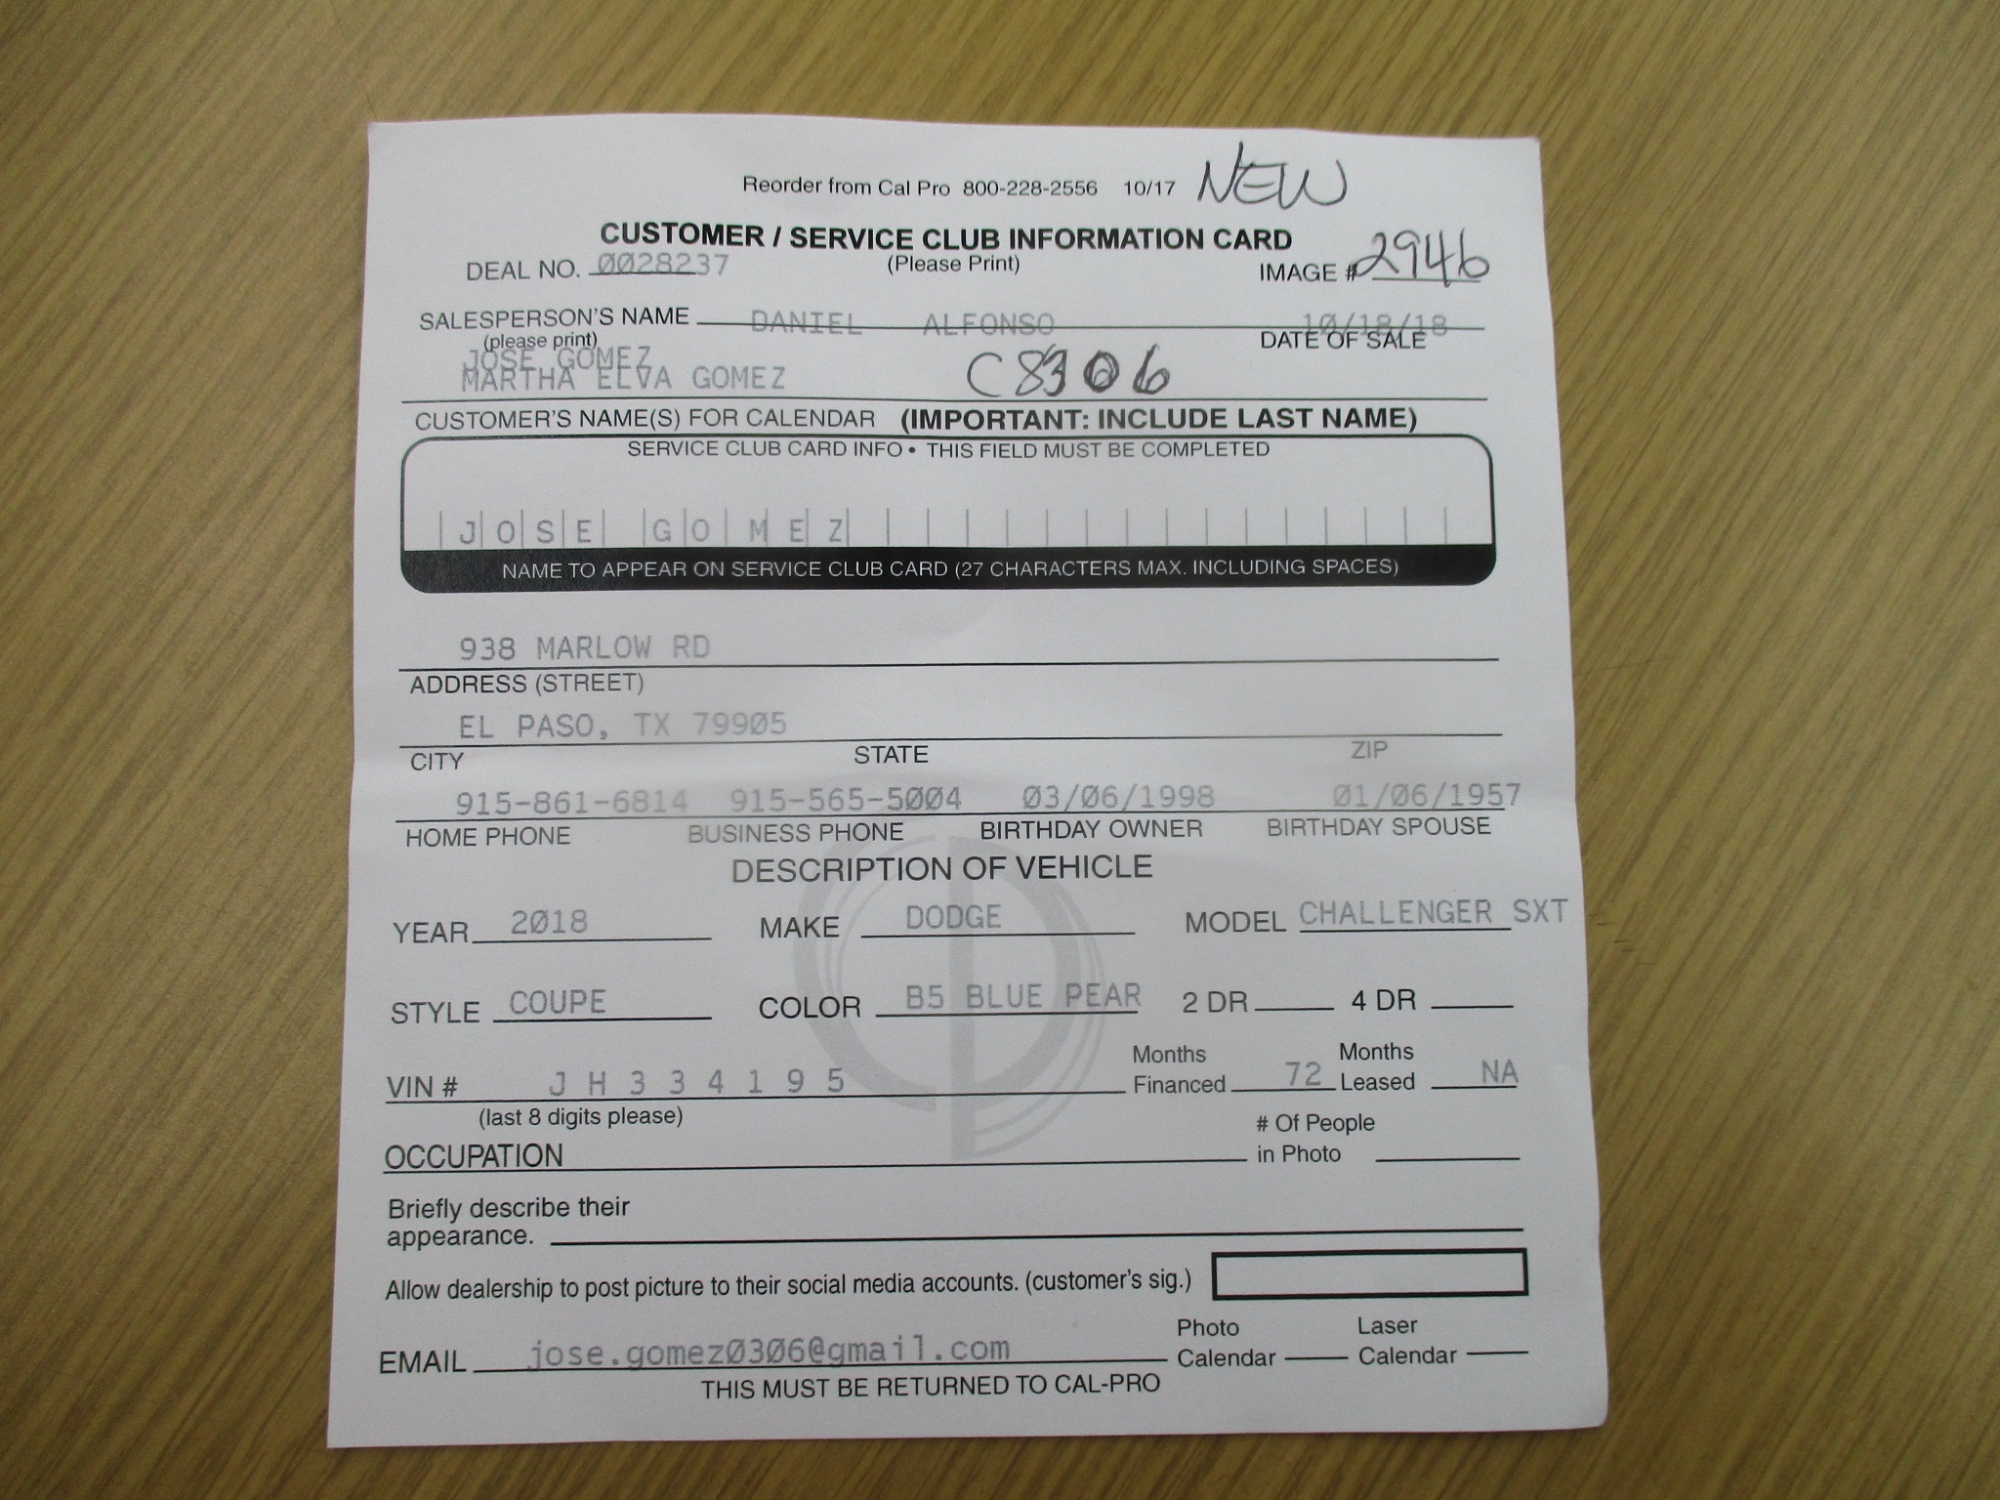 Reorder from Cal Pro 800-228-2556 10/17 NEW
CUSTOMER / SERVICE CLUB INFORMATION CARD
DEAL NO. 0028237 (Please Print) IMAGE # 2946
SALESPERSON'S NAME DANIEL ALFONSO 10/18/18
(please print) DATE OF SALE
JOSE GOMEZ
MARTHA ELVA GOMEZ C8306
CUSTOMER'S NAME(S) FOR CALENDAR (IMPORTANT: INCLUDE LAST NAME)
SERVICE CLUB CARD INFO • THIS FIELD MUST BE COMPLETED
JOSE GOMEZ
NAME TO APPEAR ON SERVICE CLUB CARD (27 CHARACTERS MAX. INCLUDING SPACES)
938 MARLOW RD
ADDRESS (STREET)
EL PASO, TX 79905
CITY STATE ZIP
915-861-6814 915-565-5004 03/06/1998 01/06/1957
HOME PHONE BUSINESS PHONE BIRTHDAY OWNER BIRTHDAY SPOUSE
DESCRIPTION OF VEHICLE
YEAR 2018 MAKE DODGE MODEL CHALLENGER SXT
STYLE COUPE COLOR B5 BLUE PEAR 2 DR 4 DR
Months Months
VIN # J H 3 3 4 1 9 5 Financed 72 Leased NA
(last 8 digits please) # Of People
OCCUPATION in Photo
Briefly describe their
appearance.
Allow dealership to post picture to their social media accounts. (customer's sig.)
Photo Laser
EMAIL jose.gomez0306@gmail.com Calendar Calendar
THIS MUST BE RETURNED TO CAL-PRO